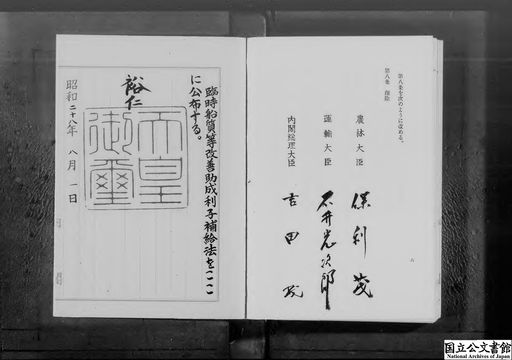 第八条を次のように改める。
第八条 削除
八
農林大臣 保利茂
運輸大臣 石井光次郎
内閣総理大臣 吉田茂
臨時船質等改善助成利子補給法をここ
に公布する。
裕仁
天皇
御璽
昭和二十八年八月一日
国立公文書館
National Archives of Japan